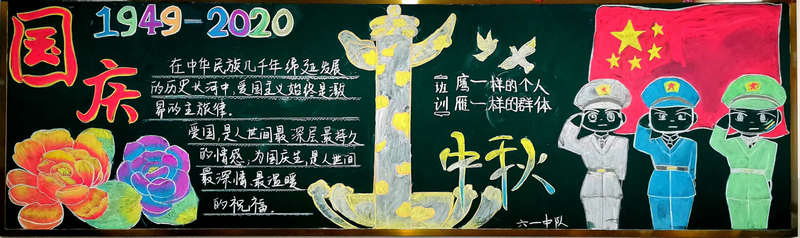 国庆
1949-2020
在中华民族几千年绵延发展
的历史长河中,爱国主义始终是激
昂的主旋律。
爱国,是人世间最深层最持久
的情感,为国庆生,是人世间
最深情最温暖
的祝福。
班训
鹰一样的个人
雁一样的群体
中秋
六一中队